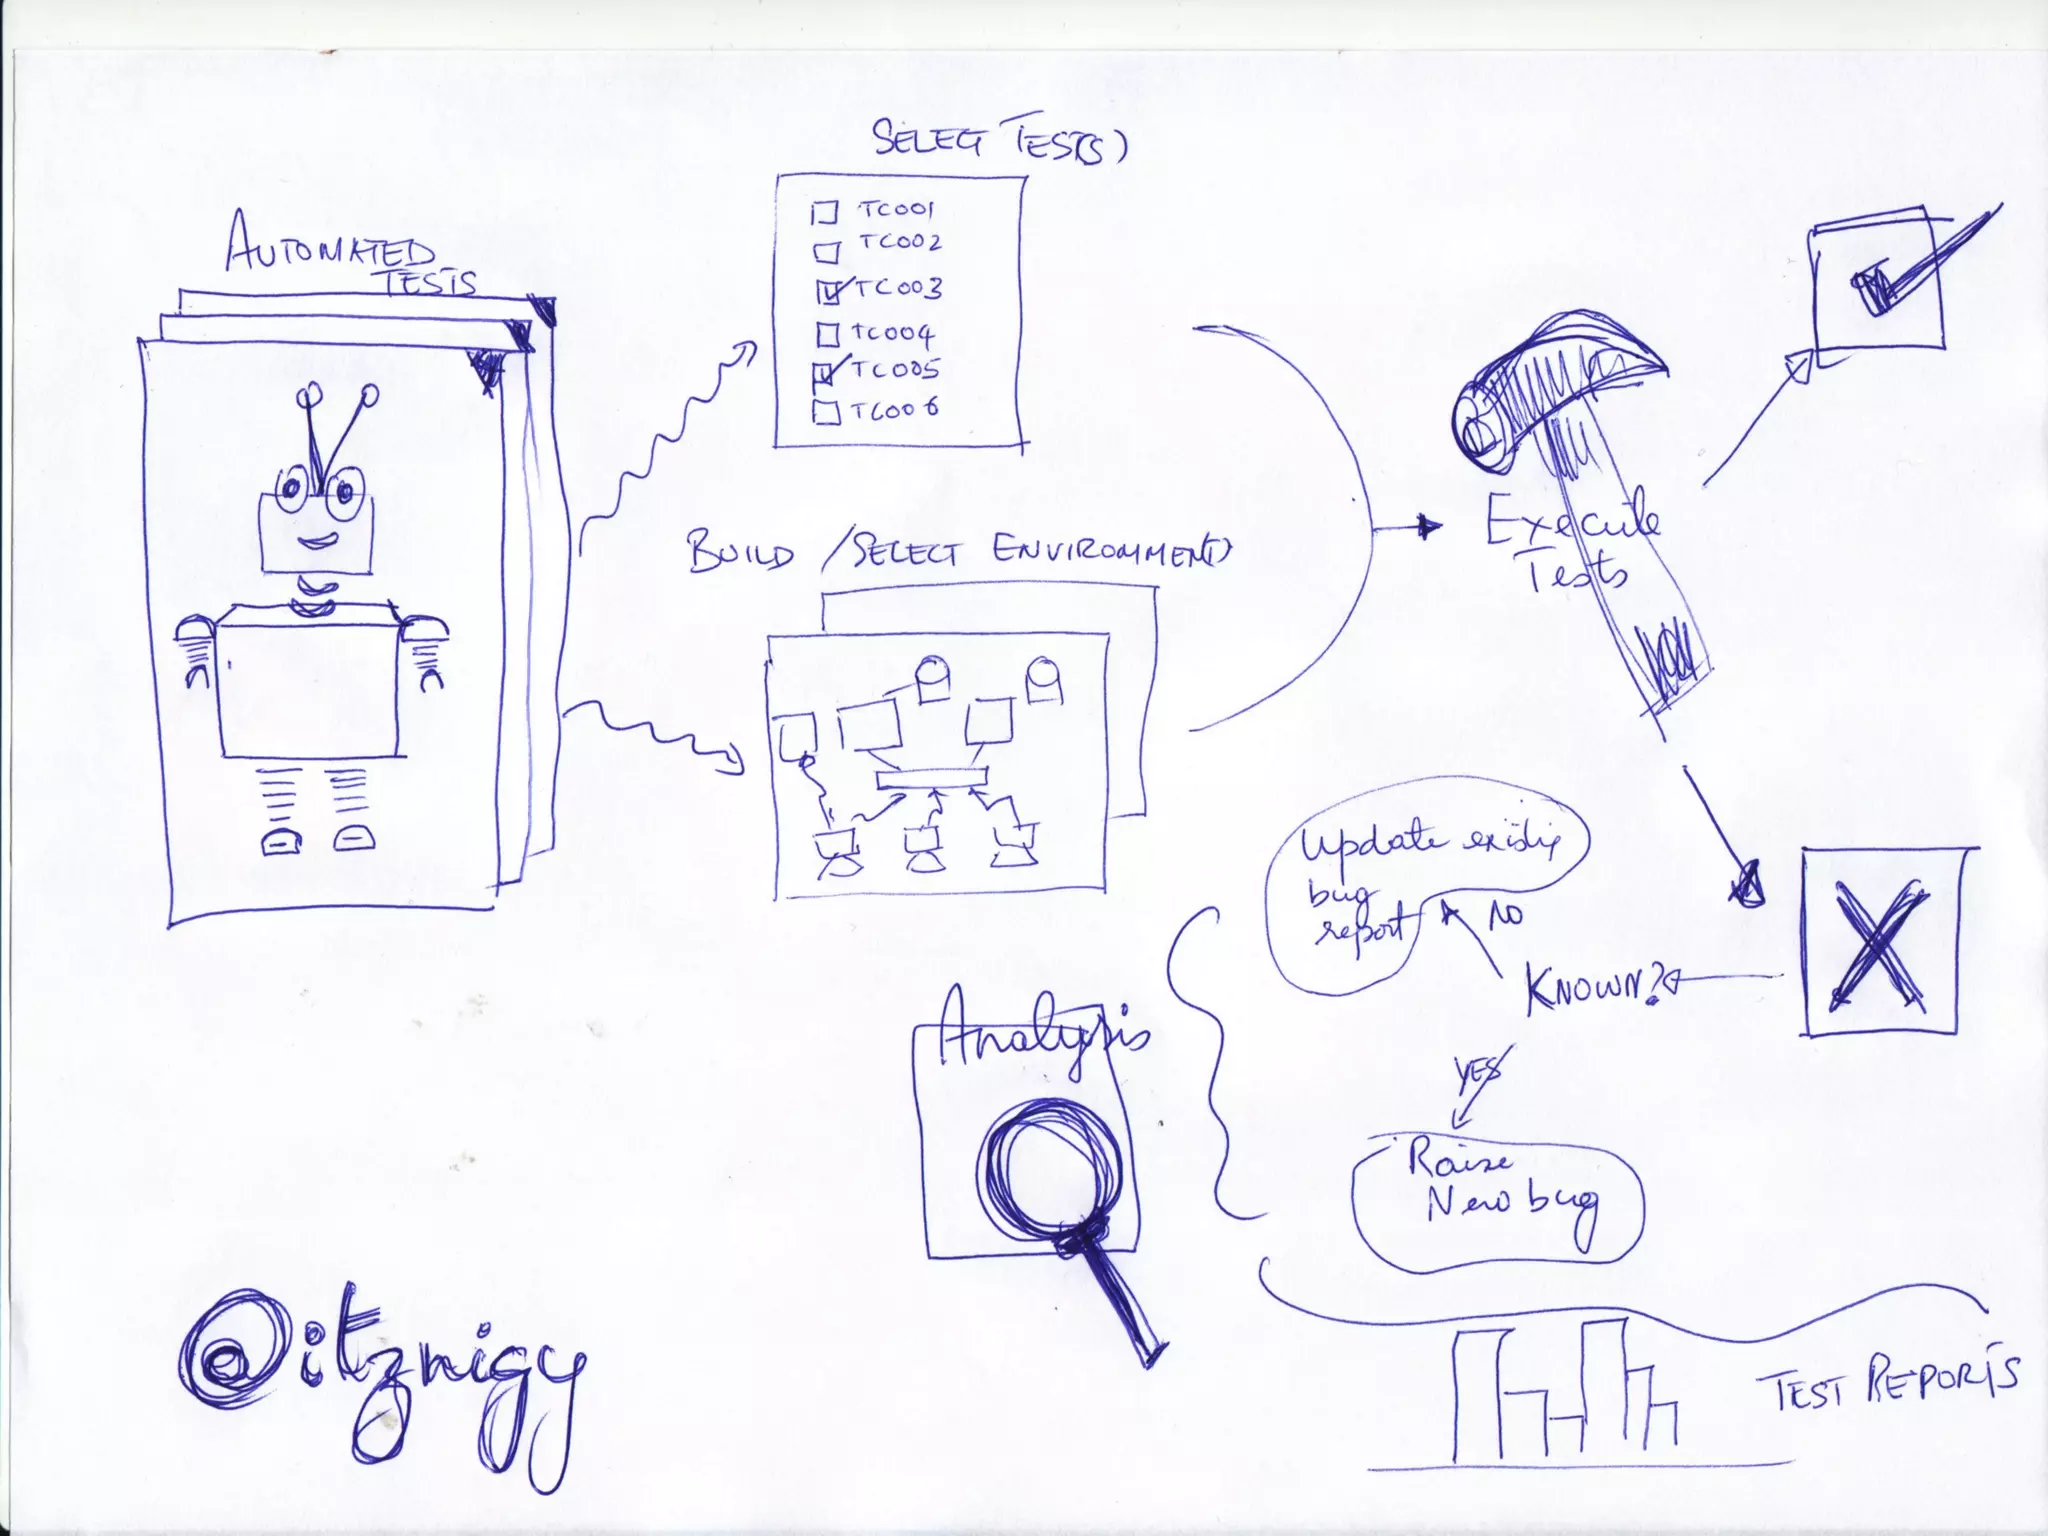 SELECT TEST(S)
AUTOMATED
TESTS
TC001
TC002
TC003
TC004
TC005
TC006
BUILD / SELECT ENVIRONMENT(S)
Execute
Tests
Update existing
bug
report
NO
KNOWN?
YES
Raise
New bug
Analysis
TEST REPORTS
@itznigy